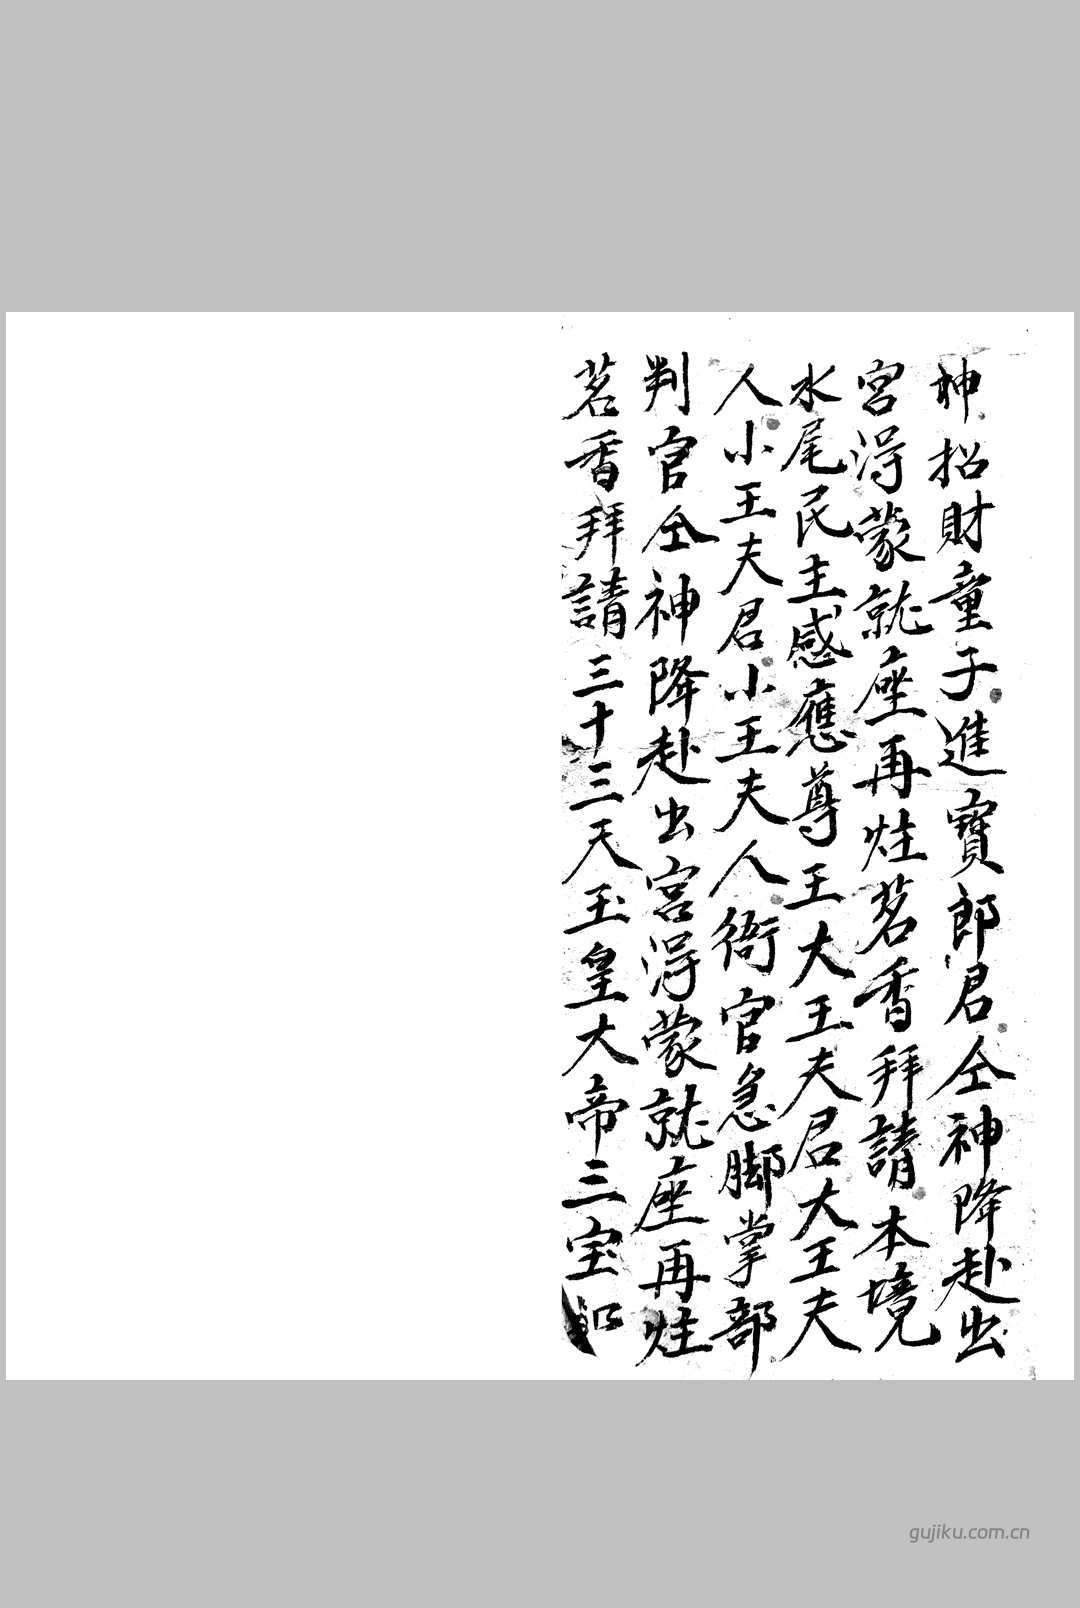 神招財童子進寶郎君仝神降赴出
宮淂蒙就座再炷茗香拜請本境
水尾民主感應尊王大王夫君大王夫
人小王夫君小王夫人衙官急脚掌部
判官仝神降赴出宮淂蒙就座再炷
茗香拜請三十三天玉皇大帝三宝
gujiku.com.cn